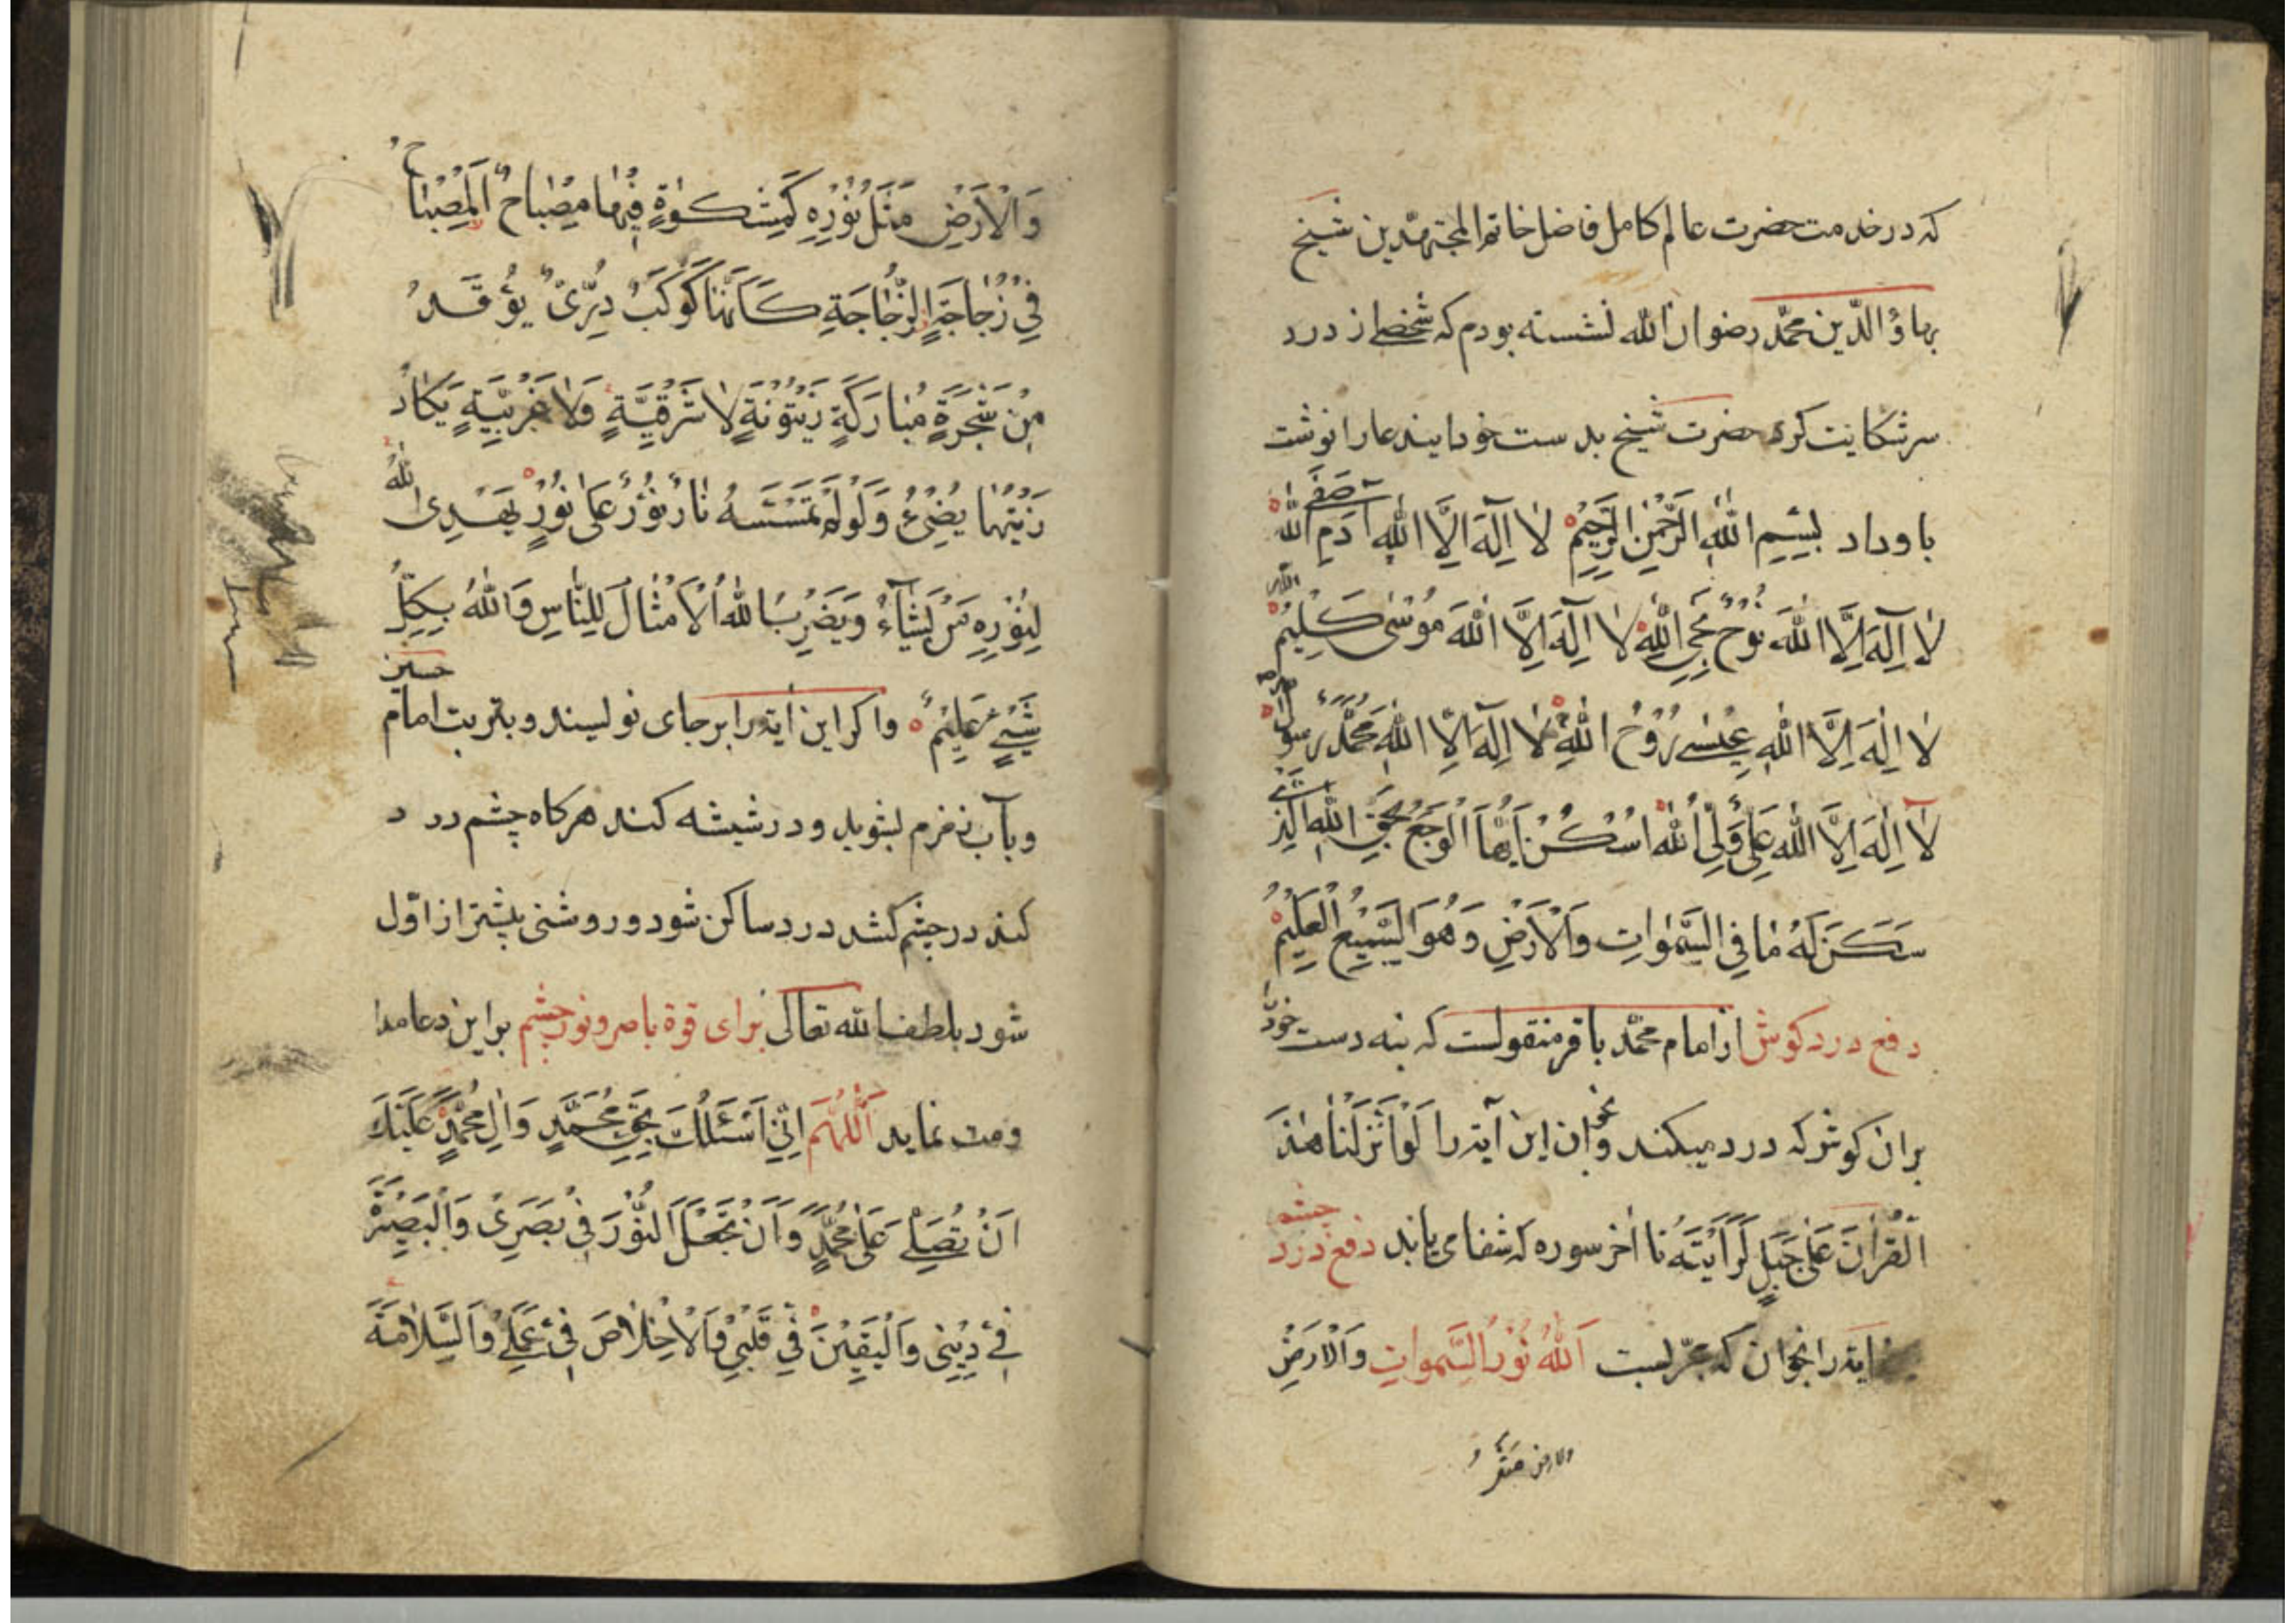 که در خدمت حضرت عالم کامل فاضل خاتم المجتهدین شیخ
بهاؤ الدّین محمّد رضوان الله نشسته بودم که شخصی از درد
سر شکایت کرد حضرت شیخ بدست خود ایندعا را نوشت
باو داد بِسْمِ اللهِ الرَّحْمٰنِ الرَّحِيْمِ لٰا اِلٰهَ اِلَّا اللهِ آدَمِ صَفِى اللهِ
لٰا اِلٰهَ اِلَّا اللهَ نُوْحٌ نَجِى اللهِ لٰا اِلٰهَ اِلَّا اللهَ مُوْسٰى كَلِيْمُ الله
لٰا اِلٰهَ اِلَّا اللهِ عِيْسٰى رُوْحُ اللهِ لٰا اِلٰهَ اِلَّا اللهِ مُحَمَّدٌ رَسُوْلُ الله
لٰا اِلٰهَ اِلَّا الله عَلِىٌّ وَلِىُّ اللهِ اُسْكُنْ اَيُّهَا الْوَجَعُ بِحَقِّ اللهِ الَّذِى
سَكَنَ لَهُ مٰا فِى السَّمٰوٰاتِ وَالْاَرْضِ وَهُوَ السَّمِيْعُ الْعَلِيْمُ
دفع درد کوش از امام محمّد باقر منقولست که بنه دست خود
بران کوش که درد میکند و بخوان این آیه را لَوْ اَنْزَلْنٰا هٰذَا
الْقُرْاٰنَ عَلٰى جَبَلٍ لَرَاَيْتَهُ تا آخر سوره که شفا می یابد دفع درد چشم
ایه را بخوان که مجرّبست اَللهُ نُوْرُ السَّمٰوٰاتِ وَالْاَرْضِ
والارض مَثَلُ
وَالْاَرْضِ مَثَلُ نُوْرِهِ كَمِشْكٰوةٍ فِيْهٰا مِصْبٰاحٌ اَلْمِصْبٰاحُ
فِىْ زُجٰاجَةٍ اَلزُّجٰاجَةِ كَاَنَّهٰا كَوْكَبٌ دُرِّىٌّ يُوْقَدُ
مِنْ شَجَرَةٍ مُبٰارَكَةٍ زَيْتُوْنَةٍ لٰا شَرْقِيَّةٍ وَلٰا غَرْبِيَّةٍ يَكٰادُ
زَيْتُهٰا يُضِىْءُ وَلَوْ لَمْ تَمْسَسْهُ نٰارٌ نُوْرٌ عَلٰى نُوْرٍ يَهْدِى اللهُ
لِنُوْرِهِ مَنْ يَشٰاءُ وَيَضْرِبُ اللهُ الْاَمْثٰالَ لِلنّٰاسِ وَاللهُ بِكُلِّ
شَيْءٍ عَلِيْمٌ واکر این ایه را بر جای نویسند و بتربت امام حسین
و بآب زمزم بشوید و در شیشه کند هرکاه چشم درد
کند در چشم کشد درد ساکن شود و روشنی بیشتر از اوّل
شود بلطف الله تعالی برای قوة باصره و نور چشم براین دعا مدا
ومت نماید اَللّٰهُمَّ اِنِّىْ اَسْئَلُكَ بِحَقِّ مُحَمَّدٍ وَاٰلِ مُحَمَّدٍ عَلَيْكَ
اَنْ تُصَلِّىَ عَلٰى مُحَمَّدٍ وَاَنْ تَجْعَلَ النُّوْرَ فِىْ بَصَرِىْ وَالْبَصِيْرَةَ
فِىْ دِيْنِىْ وَالْيَقِيْنَ فِىْ قَلْبِىْ وَالْاِخْلٰاصَ فِىْ عَمَلِىْ وَالسَّلٰامَةَ